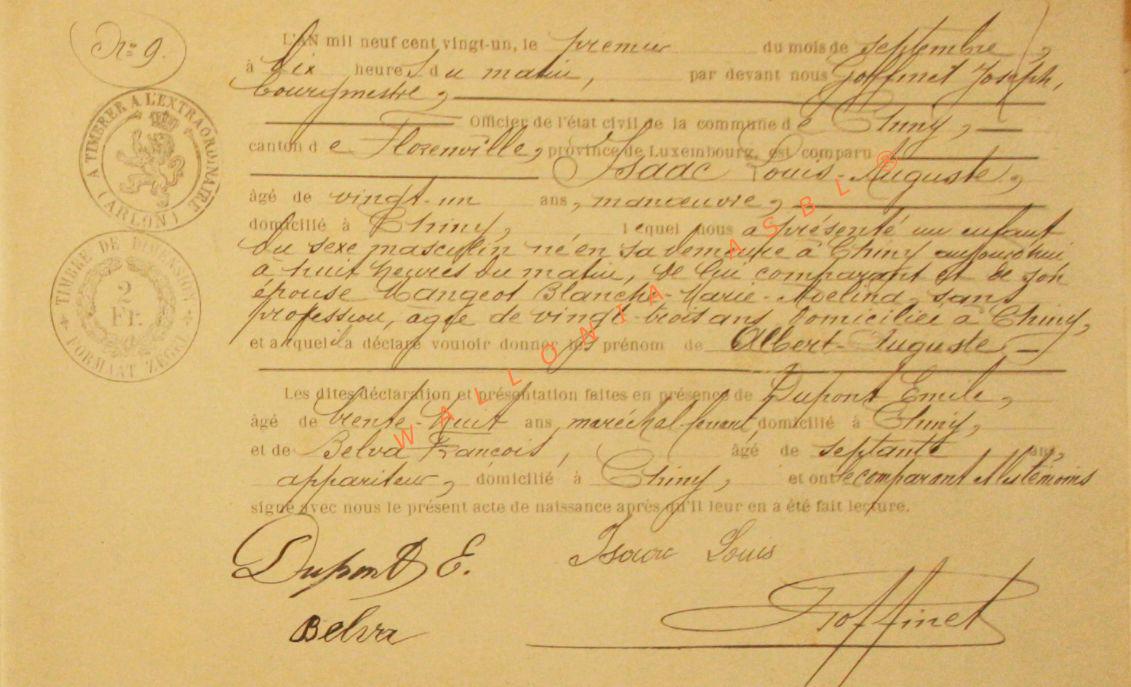 No 9.
L'AN mil neuf cent vingt-un, le premier du mois de septembre,
à dix heures du matin, par devant nous Goffinet Joseph,
bourgmestre,
Officier de l'état civil de la commune de Chiny,
canton de Florenville, province de Luxembourg, est comparu
Isaac Louis-Auguste,
âgé de vingt-un ans, manœuvre,
domicilié à Chiny, lequel nous a présenté un enfant
du sexe masculin né en sa demeure à Chiny aujourd'hui
à huit heures du matin, de lui comparant et de son
épouse Mangeot Blanche-Marie-Adelina, sans
profession, âgée de vingt-trois ans, domiciliée à Chiny,
et auquel il a déclaré vouloir donner les prénom de Albert-Auguste,
Les dites déclaration et présentation faites en présence de Dupont Emile,
âgé de trente-huit ans, maréchal-ferrant, domicilié à Chiny,
et de Belva François, âgé de septante ans,
appariteur, domicilié à Chiny, et ont le comparant et les témoins
signé avec nous le présent acte de naissance après qu'il leur en a été fait lecture.
Dupont E. Isaac Louis
Belva Goffinet
A TIMBRER A L'EXTRAORDINAIRE
(ARLON)
TIMBRE DE DIMENSION
2
Fr.
FORMAAT ZEGEL
WALLONIA ASBL ®